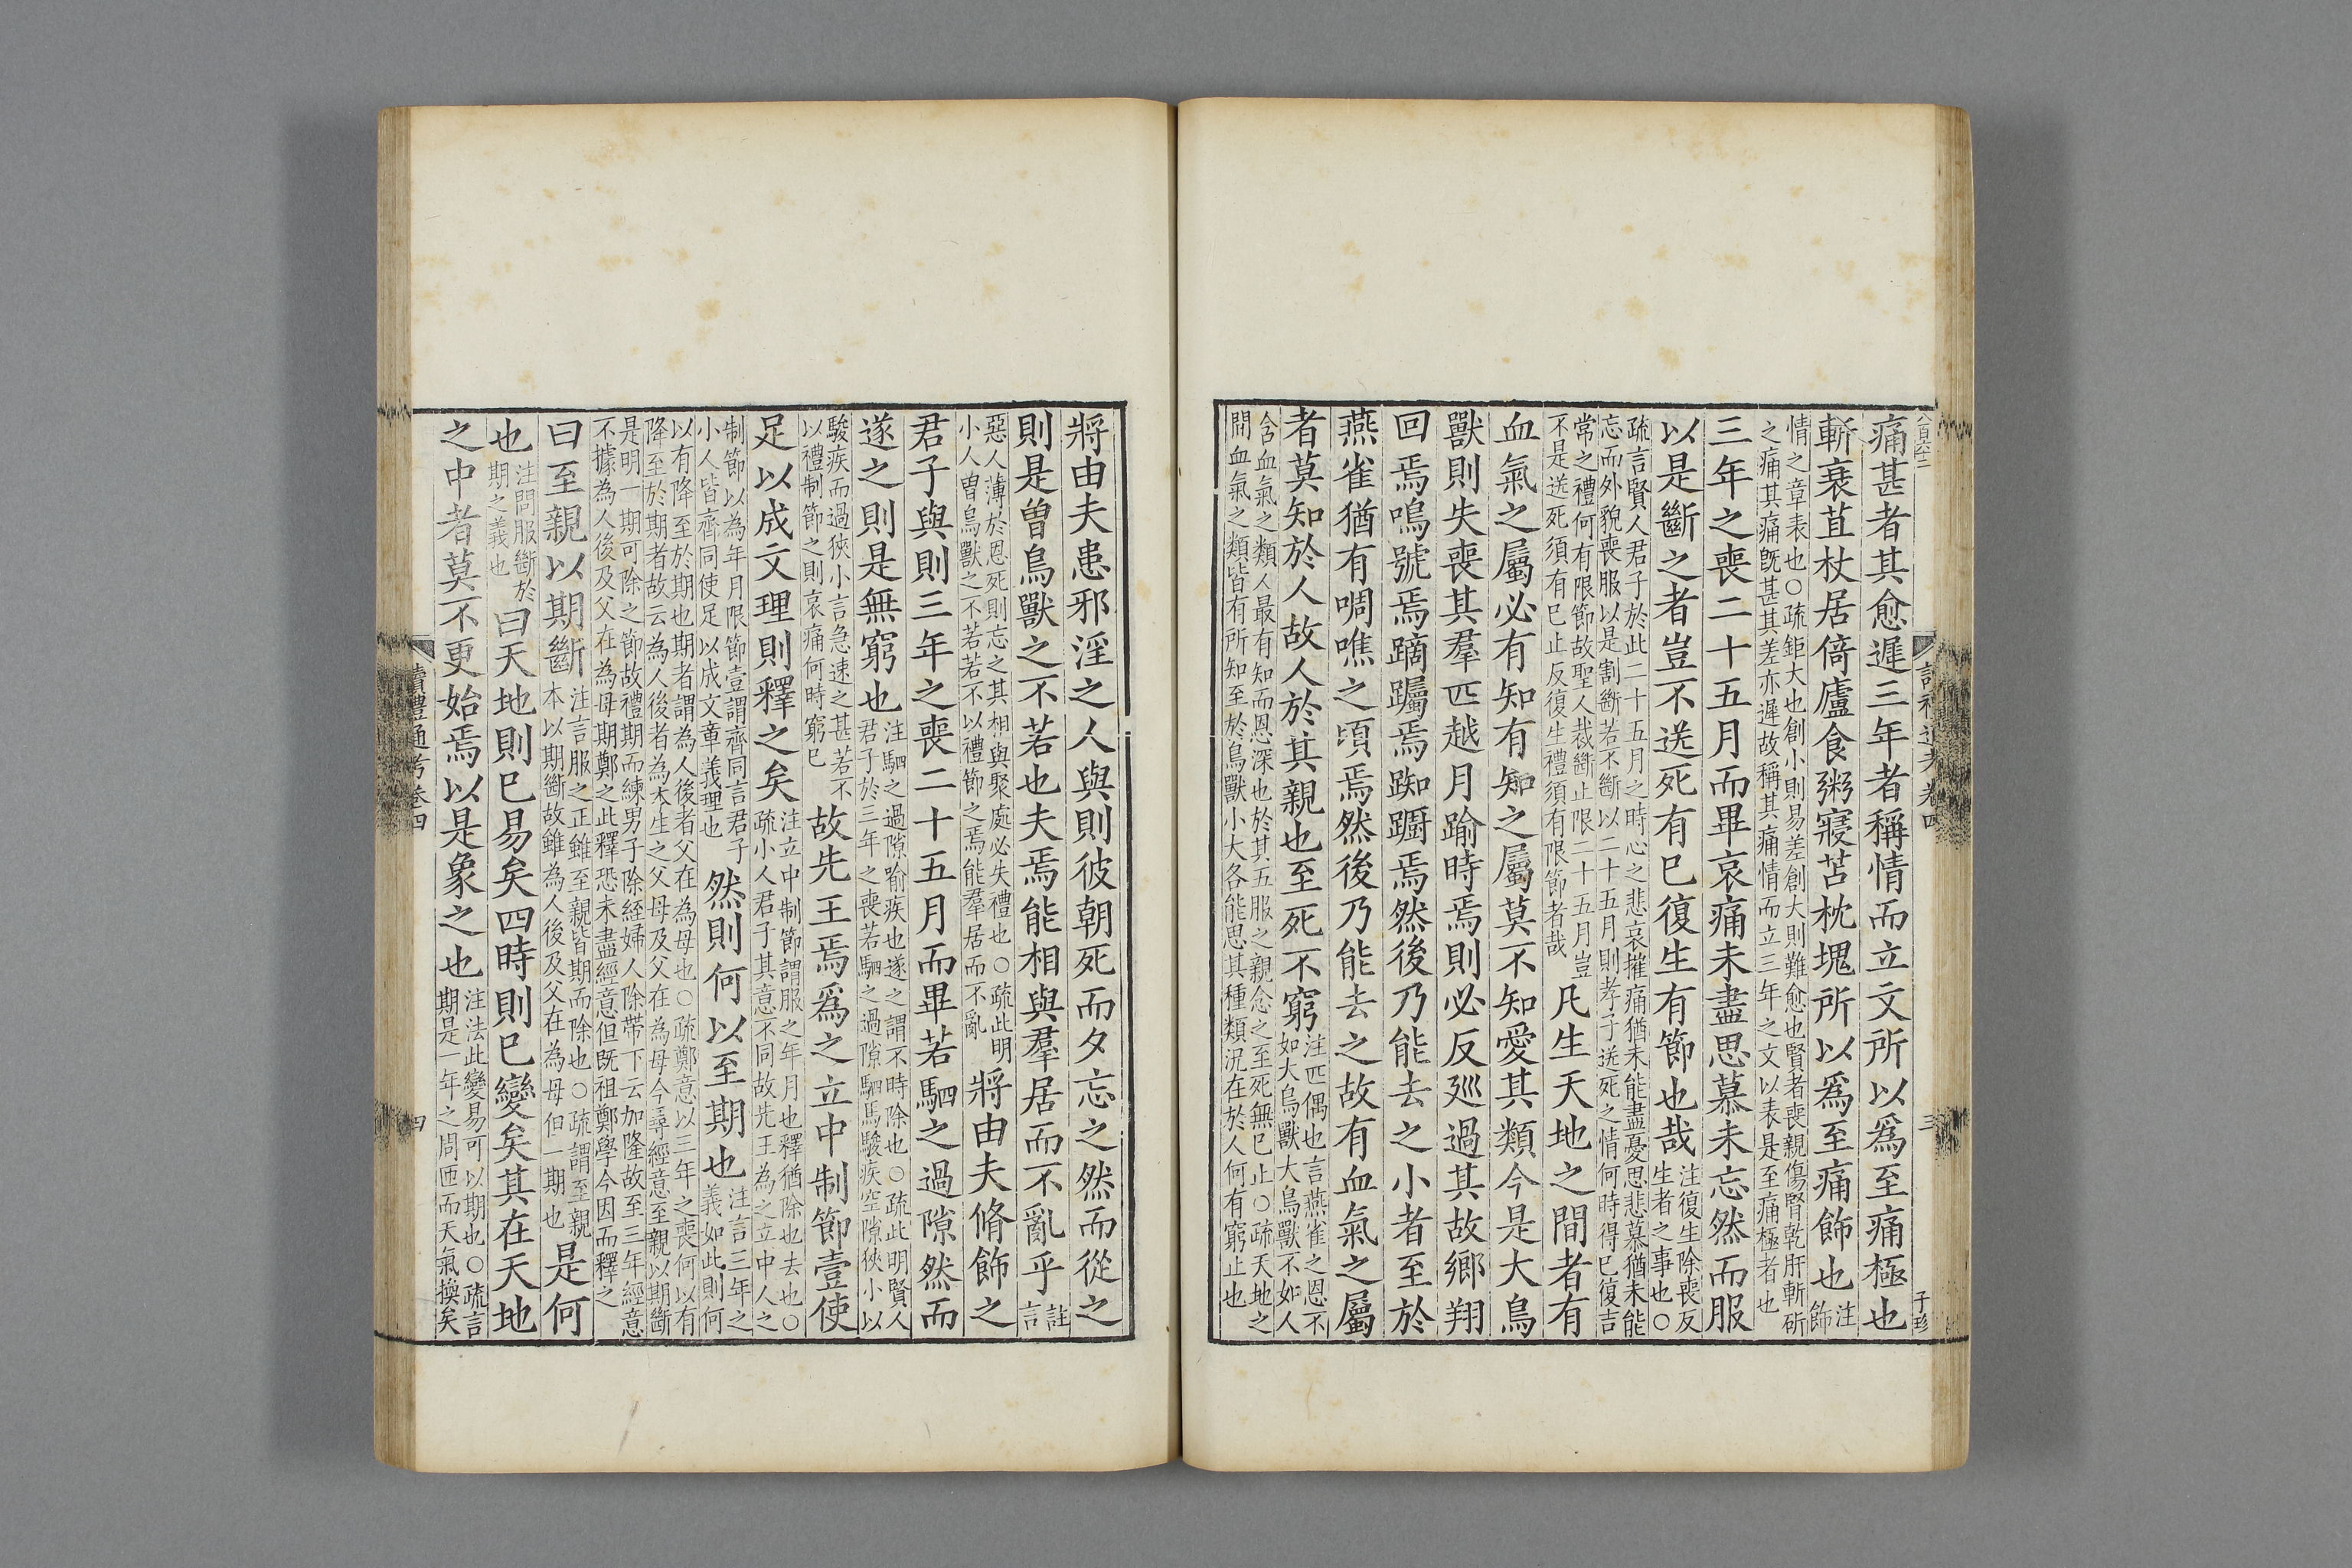 八百六十二
讀禮通考卷四
三
子珍
痛甚者其愈遲三年者稱情而立文所以爲至痛極也
斬衰苴杖居倚廬食粥寢苫枕塊所以爲至痛飾也注飾
情之章表也○疏鉅大也創小則易差創大則難愈也賢者喪親傷腎乾肝斬斫
之痛其痛旣甚其差亦遲故稱其痛情而立三年之文以表是至痛極者也
三年之喪二十五月而畢哀痛未盡思慕未忘然而服
以是斷之者豈不送死有已復生有節也哉注復生除喪反生者之事也○
疏言賢人君子於此二十五月之時心之悲哀摧痛猶未能盡憂思悲慕猶未能
忘而外貌喪服以是割斷若不斷以二十五月則孝子送死之情何時得已復吉
常之禮何有限節故聖人裁斷止限二十五月豈
不是送死須有已止反復生禮須有限節者哉
凡生天地之間者有
血氣之屬必有知有知之屬莫不知愛其類今是大鳥
獸則失喪其羣匹越月踰時焉則必反廵過其故鄉翔
回焉鳴號焉蹢躅焉踟躕焉然後乃能去之小者至於
燕雀猶有啁噍之頃焉然後乃能去之故有血氣之屬
者莫知於人故人於其親也至死不窮注匹偶也言燕雀之恩不如大鳥獸大鳥獸不如人
含血氣之類人最有知而恩深也於其五服之親念之至死無已止○疏天地之
閒血氣之類皆有所知至於鳥獸小大各能思其種類況在於人何有窮止也
將由夫患邪淫之人與則彼朝死而夕忘之然而從之
則是曾鳥獸之不若也夫焉能相與羣居而不亂乎註言
惡人薄於恩死則忘之其相與聚處必失禮也○疏此明
小人曾鳥獸之不若若不以禮節之焉能羣居而不亂
將由夫脩飾之
君子與則三年之喪二十五月而畢若駟之過隙然而
遂之則是無窮也注駟之過隙喻疾也遂之謂不時除也○疏此明賢人君子於三年之喪若駟之過隙駟馬駿疾空隙狹小以
駿疾而過狹小言急速之甚若不
以禮制節之則哀痛何時窮已
故先王焉爲之立中制節壹使
足以成文理則釋之矣注立中制節謂服之年月也釋猶除也去也○疏小人君子其意不同故先王為之立中人之
制節以為年月限節壹謂齊同言君子
小人皆齊同使足以成文章義理也
然則何以至期也注言三年之義如此則何
以有降至於期也期者謂為人後者父在為母也○疏鄭意以三年之喪何以有
降至於期者故云為人後者為本生之父母及父在為母今尋經意至親以期斷
是明一期可除之節故禮期而練男子除絰婦人除帶下云加隆故至三年經意
不據為人後及父在為母期鄭之此釋恐未盡經意但既祖鄭學今因而釋之
曰至親以期斷注言服之正雖至親皆期而除也○疏謂至親本以期斷故雖為人後及父在為母但一期也
是何
也注問服斷於期之義也
曰天地則已易矣四時則已變矣其在天地
之中者莫不更始焉以是象之也注法此變易可以期也○疏言期是一年之周匝而天氣換矣
讀禮通考卷四
四